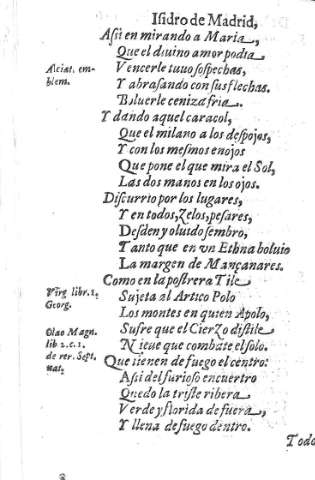 Isidro de Madrid,
Assi en mirando a Maria,
Que el diuino amor podia
Vencerle tuuo sospechas,
Y abrasando con sus flechas.
Boluerle ceniza fria.
Y dando aquel caracol,
Que el milano a los despojos,
Y con los mesmos enojos
Que pone el que mira el Sol,
Las dos manos en los ojos.
Discurrio por los lugares,
Y en todos, Zelos, pesares,
Desden y oluido sembro,
Tanto que en vn Ethna boluio
La margen de Mançanares.
Como en la postrera Tile
Sujeta al Artico Polo
Los montes en quien Apolo,
Sufre que el Cierzo distile
Nieue que combate el solo.
Que tienen de fuego el centro:
Assi del furioso encuentro
Quedo la triste ribera
Verde y florida de fuera,
Y llena de fuego dentro.
Todo
Alciat. em-
blem.
Virg libr. 1.
Georg.
Olao Magn.
lib 2. c. 1.
de rer. Sept.
nat.